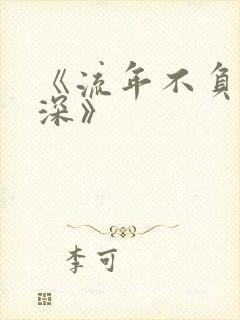 《流年不负
深》
李可